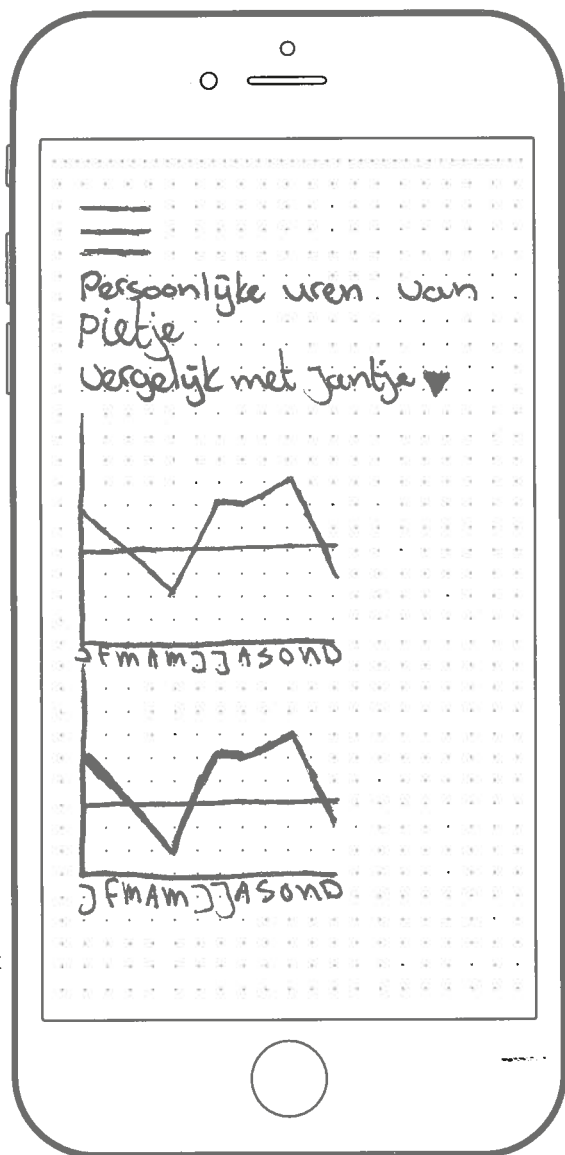 Persoonlijke uren van
Pietje
Vergelijk met Jantje
JFMAMJJASOND
JFMAMJJASOND